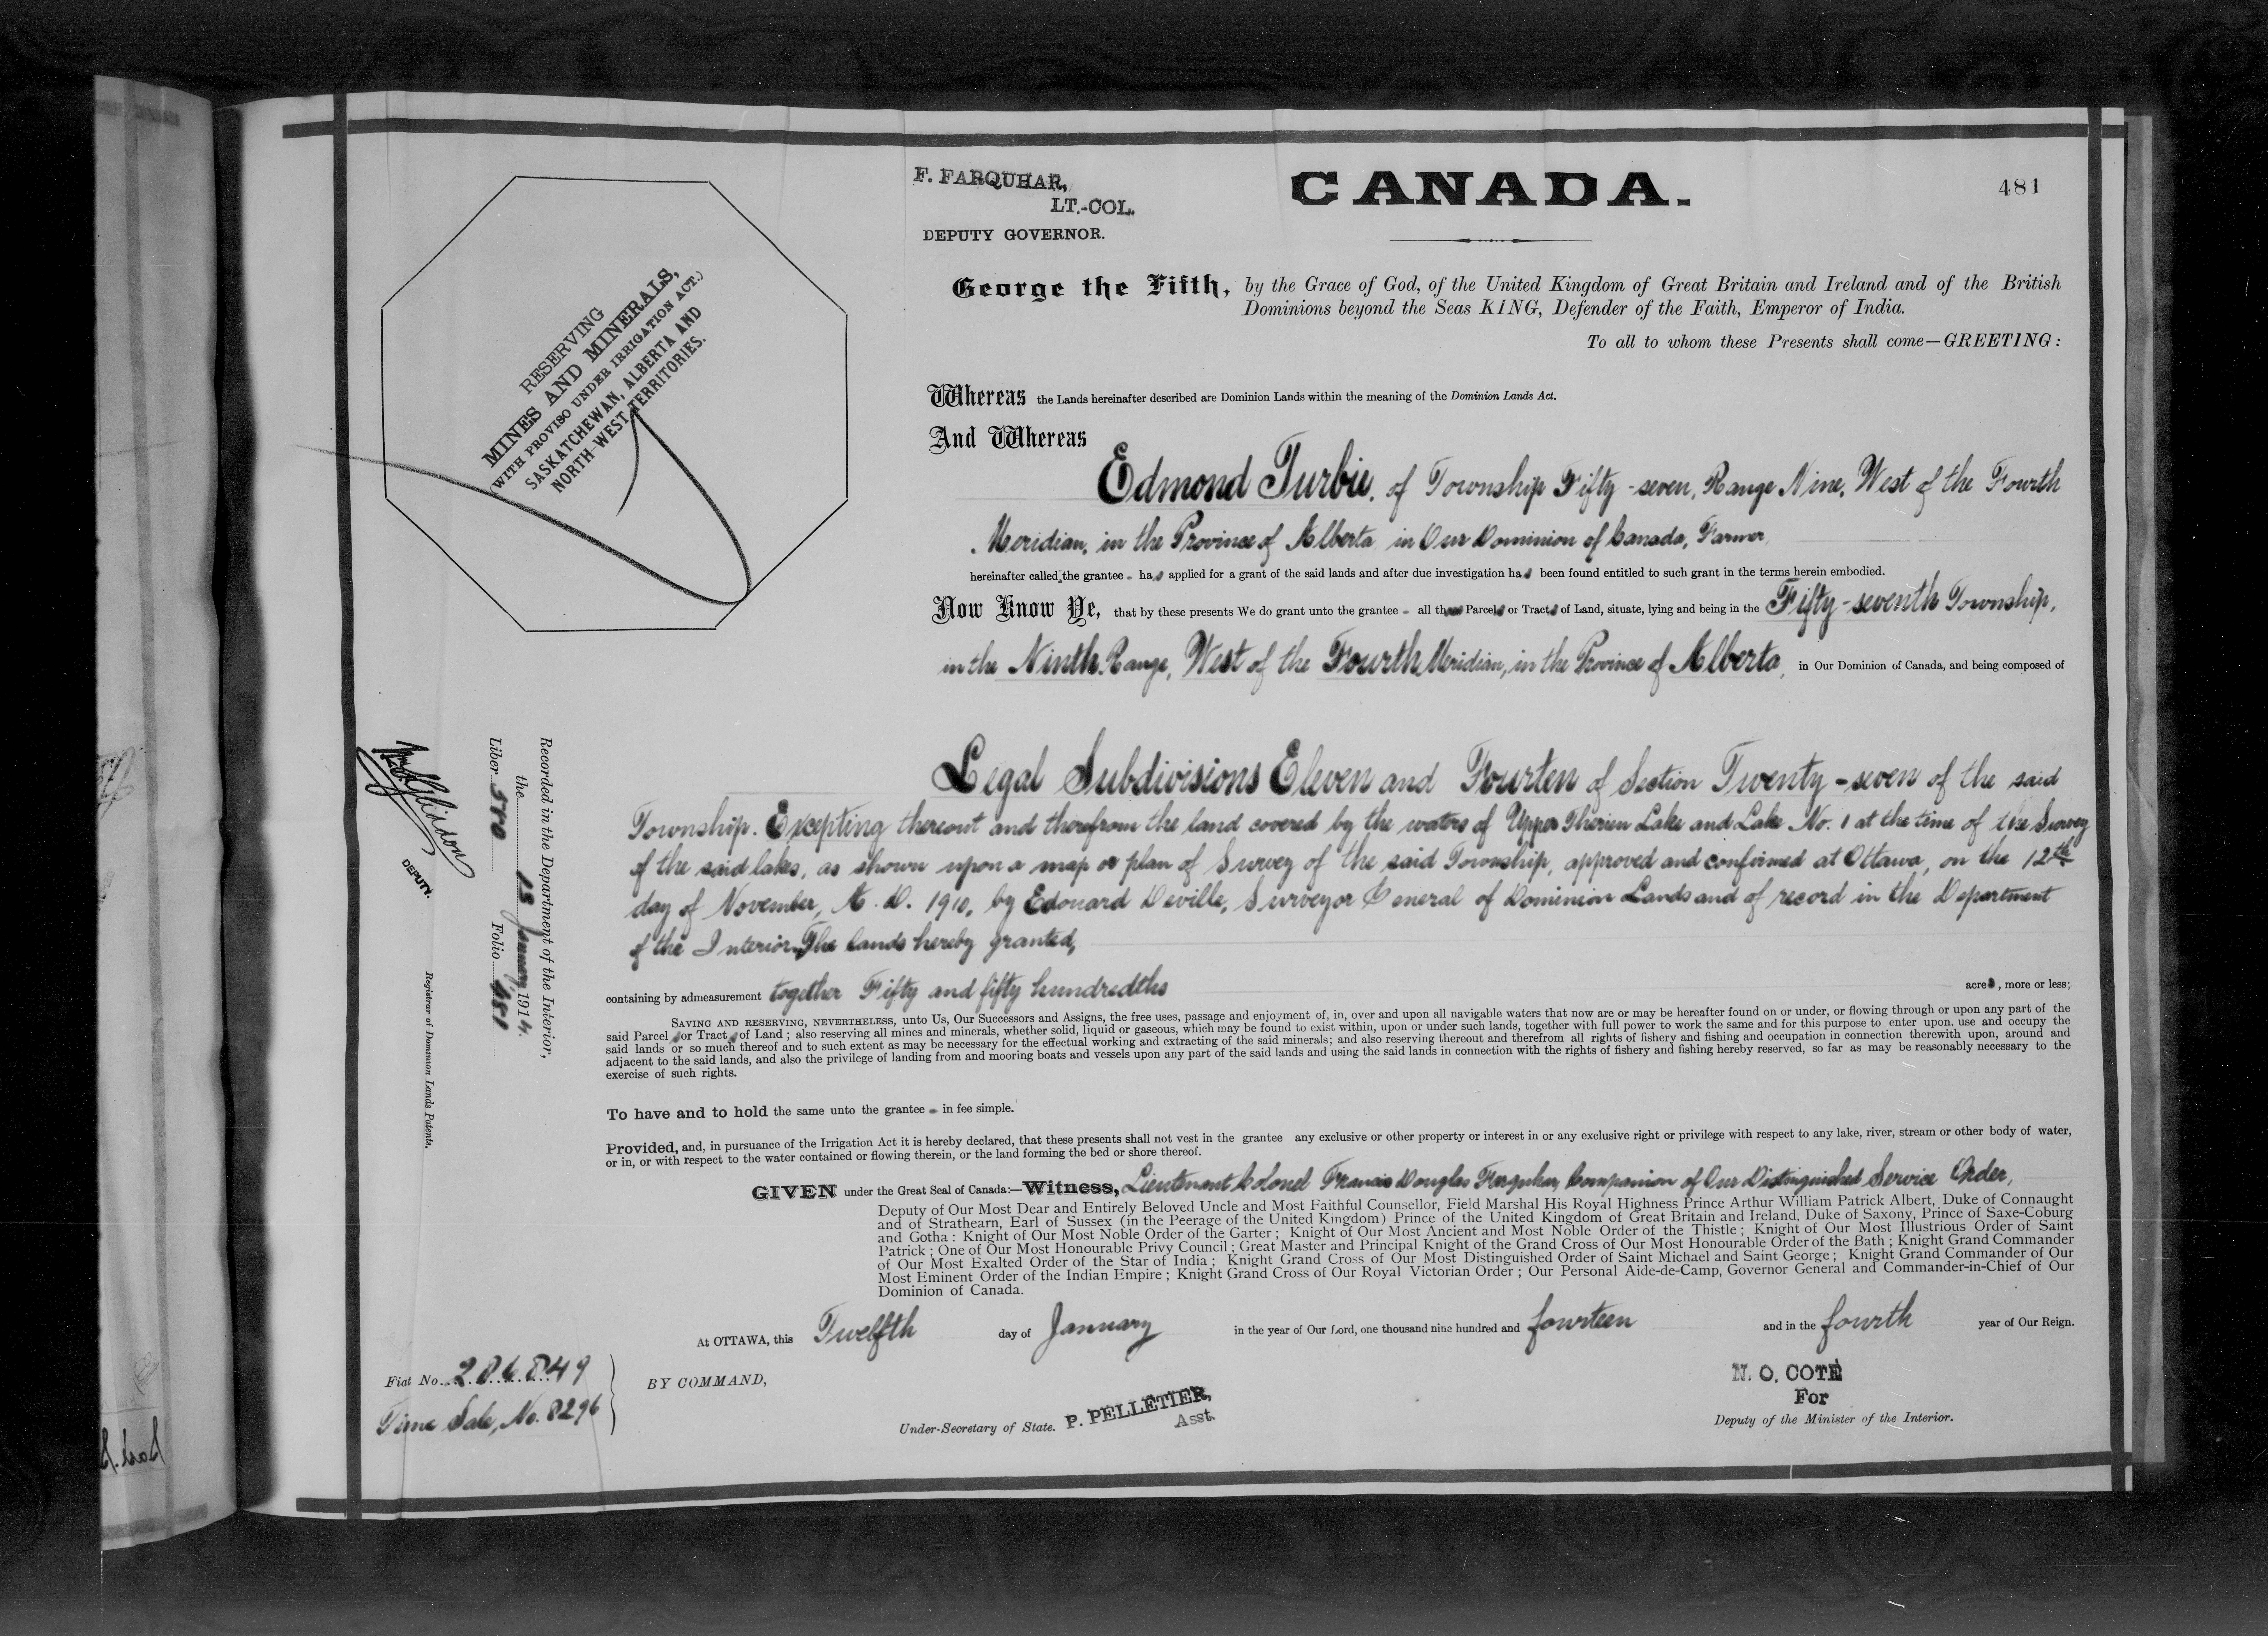 F. FARQUHAR,
LT.-COL.
DEPUTY GOVERNOR.
CANADA.
481
RESERVING
MINES AND MINERALS,
(WITH PROVISO UNDER IRRIGATION ACT.)
SASKATCHEWAN, ALBERTA AND
NORTH-WEST TERRITORIES.
George the Fifth, by the Grace of God, of the United Kingdom of Great Britain and Ireland and of the British
Dominions beyond the Seas KING, Defender of the Faith, Emperor of India.
To all to whom these Presents shall come—GREETING:
Whereas the Lands hereinafter described are Dominion Lands within the meaning of the Dominion Lands Act.
And Whereas
Edmond Turbie, of Township Fifty-seven, Range Nine, West of the Fourth
Meridian, in the Province of Alberta in Our Dominion of Canada, Farmer,
hereinafter called the grantee - has applied for a grant of the said lands and after due investigation has been found entitled to such grant in the terms herein embodied.
Now Know Ye, that by these presents We do grant unto the grantee - all those Parcels or Tracts of Land, situate, lying and being in the Fifty-seventh Township,
in the Ninth Range, West of the Fourth Meridian, in the Province of Alberta, in Our Dominion of Canada, and being composed of
Legal Subdivisions Eleven and Fourten of Section Twenty-seven of the said
Township. Excepting thereout and therefrom the land covered by the waters of Upper Therien Lake and Lake No. 1 at the time of the Survey
of the said lakes, as shown upon a map or plan of Survey of the said Township, approved and confirmed at Ottawa, on the 12th
day of November, A. D. 1910, by Edouard Deville, Surveyor General of Dominion Lands and of record in the Department
of the Interior. The lands hereby granted,
containing by admeasurement together Fifty and fifty hundredths acres, more or less;
SAVING AND RESERVING, NEVERTHELESS, unto Us, Our Successors and Assigns, the free uses, passage and enjoyment of, in, over and upon all navigable waters that now are or may be hereafter found on or under, or flowing through or upon any part of the
said Parcel or Tract of Land; also reserving all mines and minerals, whether solid, liquid or gaseous, which may be found to exist within, upon or under such lands, together with full power to work the same and for this purpose to enter upon, use and occupy the
said lands or so much thereof and to such extent as may be necessary for the effectual working and extracting of the said minerals; and also reserving thereout and therefrom all rights of fishery and fishing and occupation in connection therewith upon, around and
adjacent to the said lands, and also the privilege of landing from and mooring boats and vessels upon any part of the said lands and using the said lands in connection with the rights of fishery and fishing hereby reserved, so far as may be reasonably necessary to the
exercise of such rights.
To have and to hold the same unto the grantee - in fee simple.
Provided, and, in pursuance of the Irrigation Act it is hereby declared, that these presents shall not vest in the grantee any exclusive or other property or interest in or any exclusive right or privilege with respect to any lake, river, stream or other body of water,
or in, or with respect to the water contained or flowing therein, or the land forming the bed or shore thereof.
GIVEN under the Great Seal of Canada:—Witness, Lieutenant Colonel Francis Douglas Farquhar, Companion of Our Distinguished Service Order,
Deputy of Our Most Dear and Entirely Beloved Uncle and Most Faithful Counsellor, Field Marshal His Royal Highness Prince Arthur William Patrick Albert, Duke of Connaught
and of Strathearn, Earl of Sussex (in the Peerage of the United Kingdom) Prince of the United Kingdom of Great Britain and Ireland, Duke of Saxony, Prince of Saxe-Coburg
and Gotha: Knight of Our Most Noble Order of the Garter; Knight of Our Most Ancient and Most Noble Order of the Thistle; Knight of Our Most Illustrious Order of Saint
Patrick; One of Our Most Honourable Privy Council; Great Master and Principal Knight of the Grand Cross of Our Most Honourable Order of the Bath; Knight Grand Commander
of Our Most Exalted Order of the Star of India; Knight Grand Cross of Our Most Distinguished Order of Saint Michael and Saint George; Knight Grand Commander of Our
Most Eminent Order of the Indian Empire; Knight Grand Cross of Our Royal Victorian Order; Our Personal Aide-de-Camp, Governor General and Commander-in-Chief of Our
Dominion of Canada.
At OTTAWA, this Twelfth day of January in the year of Our Lord, one thousand nine hundred and fourteen and in the fourth year of Our Reign.
Fiat No. 206849
Time Sale, No. 8296
BY COMMAND,
Under-Secretary of State. P. PELLETIER,
Asst.
N. O. COTÉ
For
Deputy of the Minister of the Interior.
Recorded in the Department of the Interior,
the 15 January 1914.
Liber 580 Folio 481
DEPUTY.
Registrar of Dominion Lands Patents.